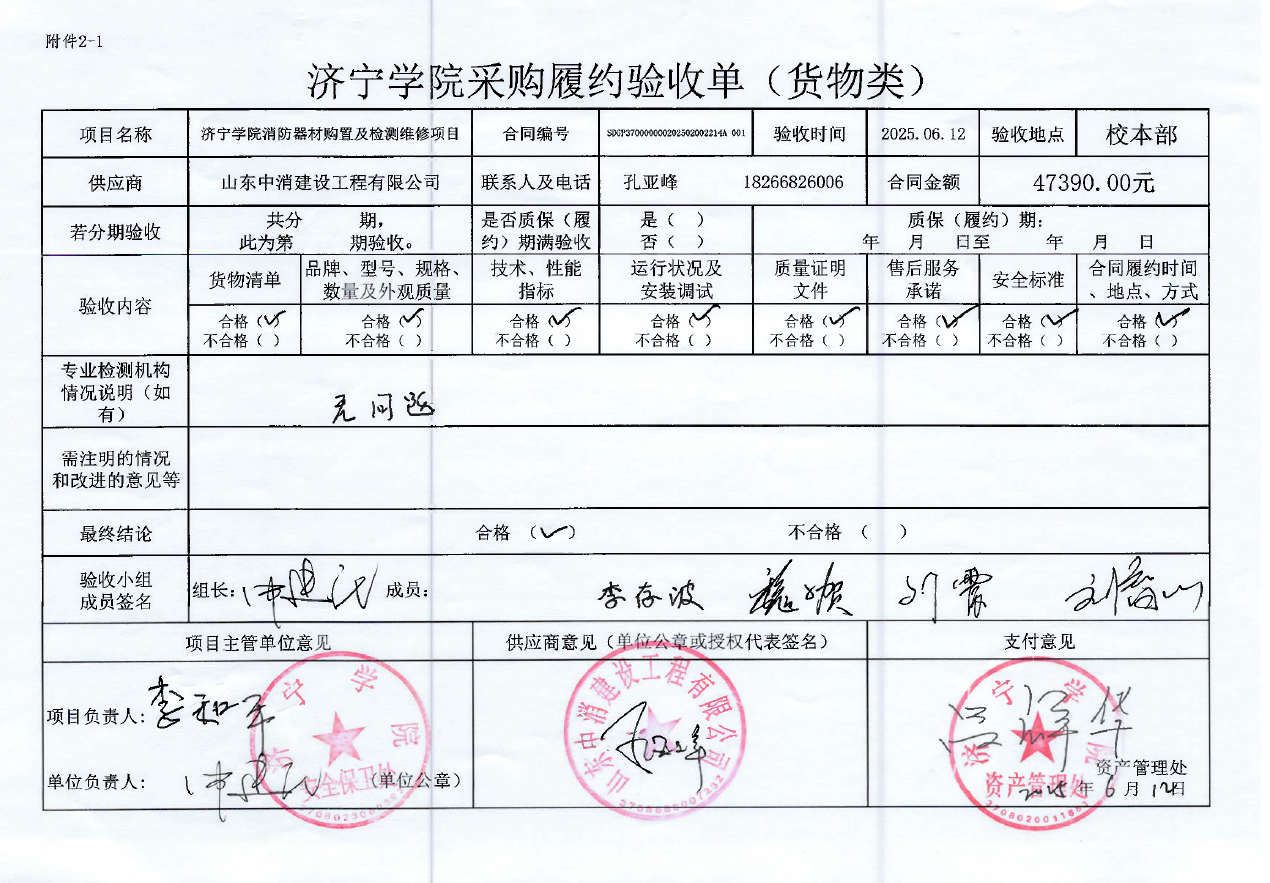 附件2-1
济宁学院采购履约验收单（货物类）
项目名称 济宁学院消防器材购置及检测维修项目 合同编号 SDGP370000000202502002214A 001 验收时间 2025.06.12 验收地点 校本部
供应商 山东中消建设工程有限公司 联系人及电话 孔亚峰 18266826006 合同金额 47390.00元
若分期验收 共分 期，
此为第 期验收。
是否质保（履
约）期满验收
是（ ）
否（ ）
质保（履约）期：
年 月 日至 年 月 日
验收内容
货物清单
品牌、型号、规格、
数量及外观质量
技术、性能
指标
运行状况及
安装调试
质量证明
文件
售后服务
承诺
安全标准
合同履约时间
、地点、方式
合格（✓） 合格（✓） 合格（✓） 合格（✓） 合格（✓） 合格（✓） 合格（✓） 合格（✓）
不合格（ ） 不合格（ ） 不合格（ ） 不合格（ ） 不合格（ ） 不合格（ ） 不合格（ ） 不合格（ ）
专业检测机构
情况说明（如
有）
无问题
需注明的情况
和改进的意见等
最终结论 合格 （✓） 不合格 （ ）
验收小组
成员签名
组长： 成员： 李存波
项目主管单位意见 供应商意见（单位公章或授权代表签名） 支付意见
项目负责人：
单位负责人： （单位公章）
济宁学院
安全保卫处
山东中消建设工程有限公司
济宁学院
资产管理处
资产管理处
2025 年 6 月 12日